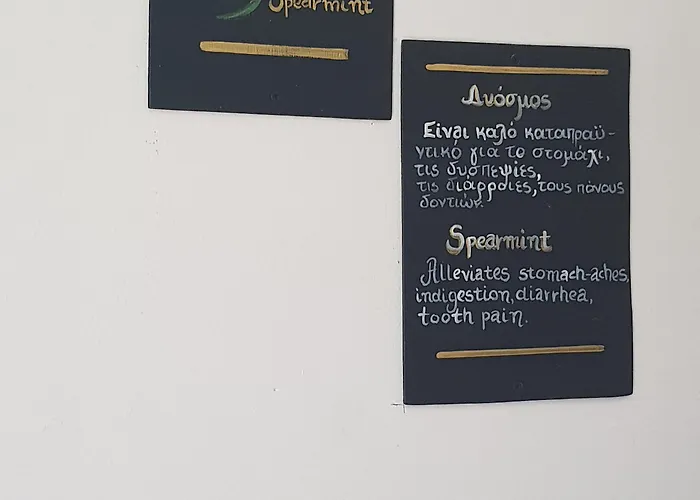 Spearmint
Δυόσμος
Είναι καλό καταπραϋ-
ντικό για το στομάχι,
τις δυσπεψίες,
τις διάρροιες, τους πόνους
δοντιών.
Spearmint
Alleviates stomach-aches,
indigestion, diarrhea,
tooth pain.